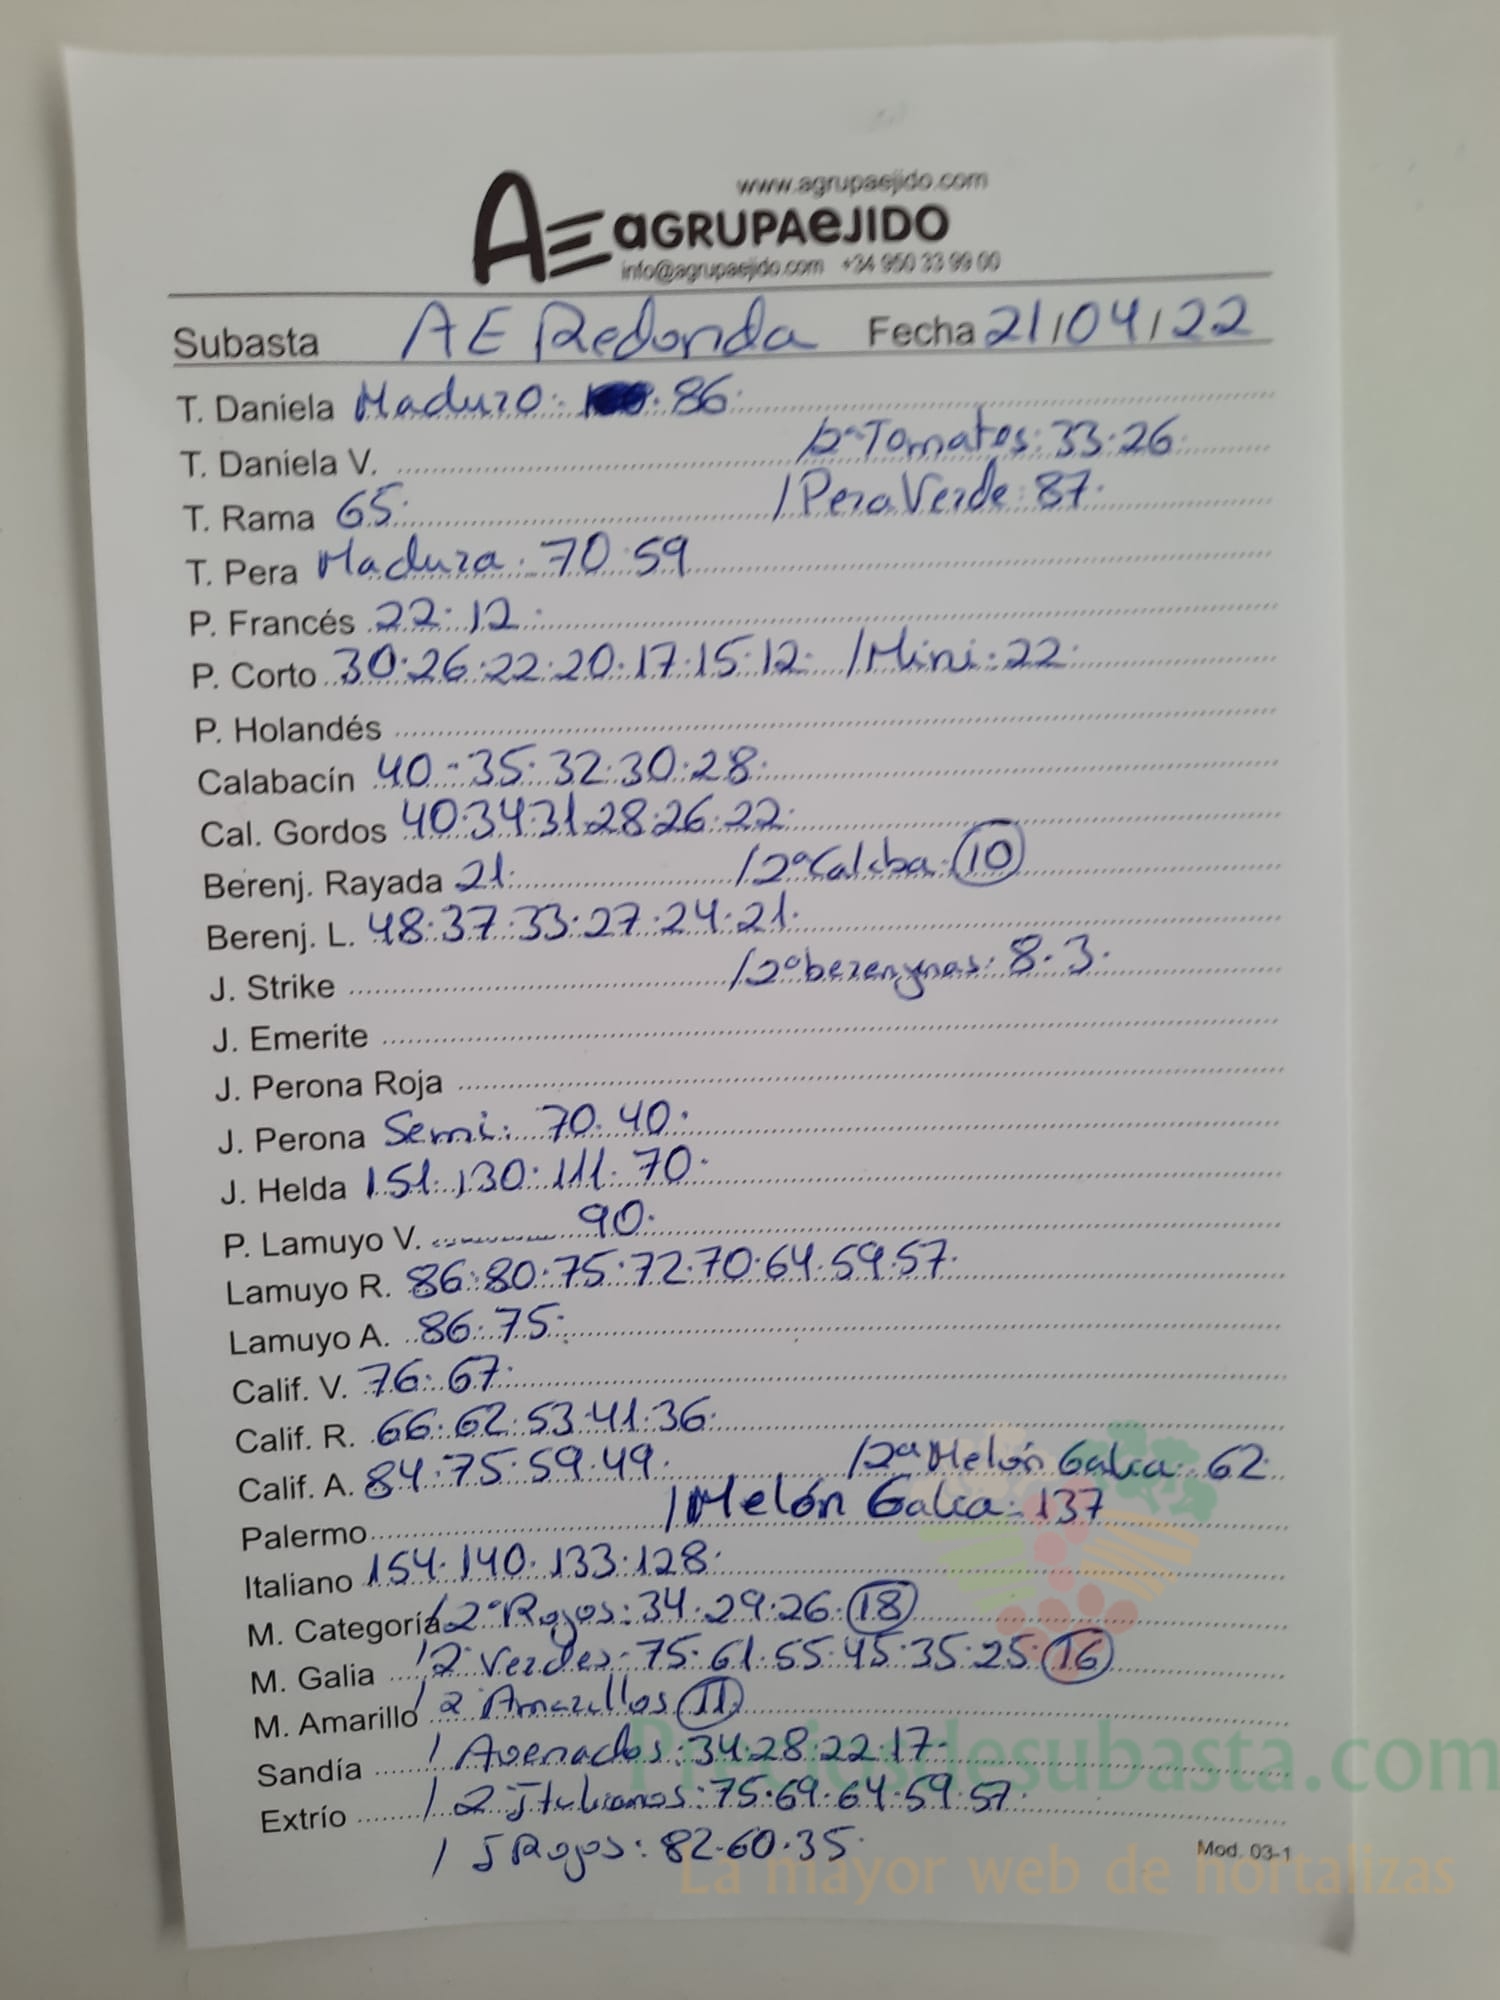 www.agrupaejido.com
AE aGRUPAeJIDO
info@agrupaejido.com +34 950 33 99 00
Subasta AE Redonda Fecha 21/04/22
T. Daniela Maduro: 86.
T. Daniela V. /2ª Tomates: 33.26.
T. Rama 65. /Pera Verde: 87.
T. Pera Madura. 70.59
P. Francés 22.12.
P. Corto 30.26.22.20.17.15.12. /Mini: 22.
P. Holandés
Calabacín 40.35.32.30.28.
Cal. Gordos 40.34.31.28.26.22.
Berenj. Rayada 21. /2ª Calaba. 10
Berenj. L. 48.37.33.27.24.21.
J. Strike /2ª berenjenas: 8.3.
J. Emerite
J. Perona Roja
J. Perona Semi: 70.40.
J. Helda 151.130.111.70.
P. Lamuyo V. 90.
Lamuyo R. 86.80.75.72.70.64.59.57.
Lamuyo A. 86.75.
Calif. V. 76.67.
Calif. R. 66.62.53.41.36.
Calif. A. 84.75.59.49. /2ª Melón Galia: 62.
Palermo /Melón Galia: 137
Italiano 154.140.133.128.
M. Categoría /2ª Rojos: 34.29.26. 18
M. Galia /2ª Verdes: 75.61.55.45.35.25. 16
M. Amarillo /2ª Amarillos 11
Sandía / Asenados: 34.28.22.17.
Extrío / 2 Italianos: 75.69.64.59.57.
/ J Rojos: 82.60.35.
Mod. 03-1
Preciosdesubasta.com
La mayor web de hortalizas